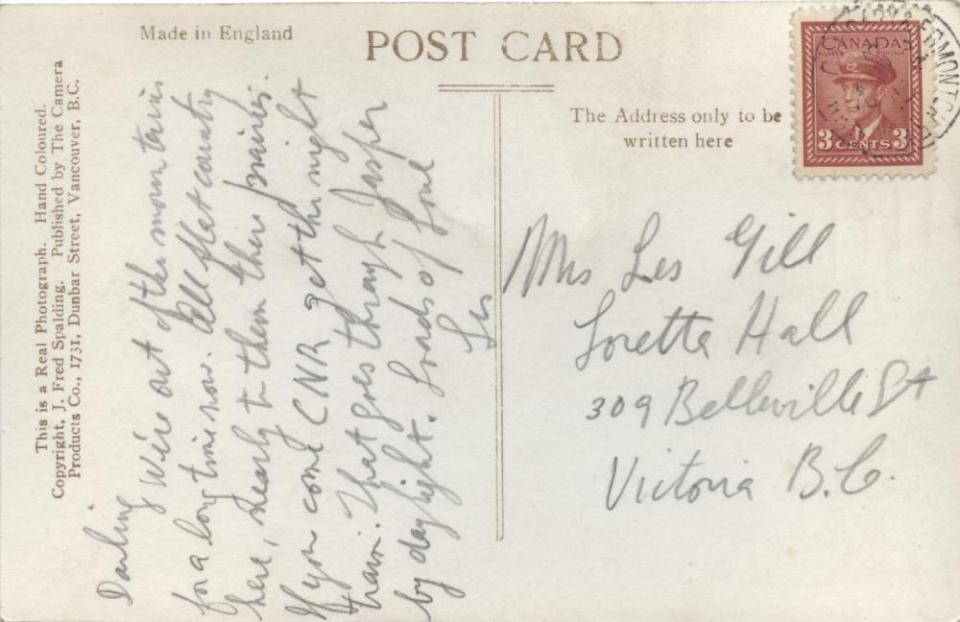 Made in England
POST CARD
This is a Real Photograph. Hand Coloured.
Copyright, J. Fred Spalding. Published by The Camera
Products Co., 1731, Dunbar Street, Vancouver, B.C.
The Address only to be
written here
CANADA
3 CENTS 3
EDMONTON
Darling We're out of the mountains
for a long time now. All flat country
here, nearly to them there prairies.
If you come CNR get the night
train. That goes through Jasper
by daylight. Loads of love
Les
Mrs Les Gill
Loretta Hall
309 Belleville St
Victoria B.C.